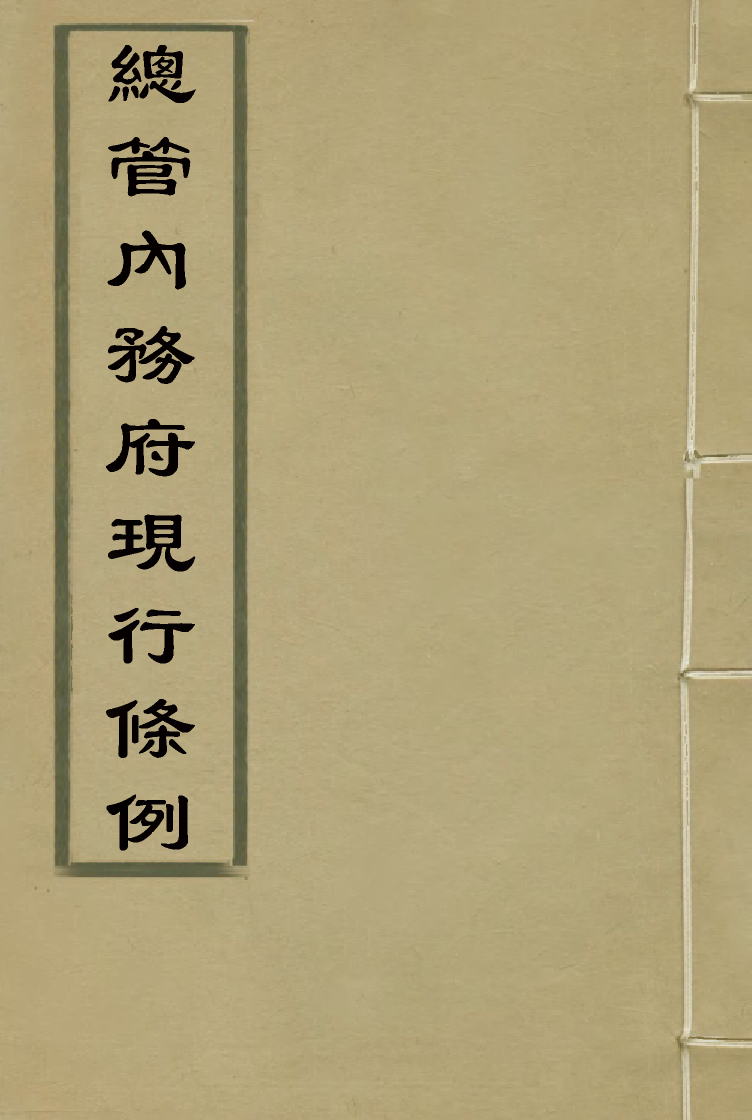 總管內務府現行條例